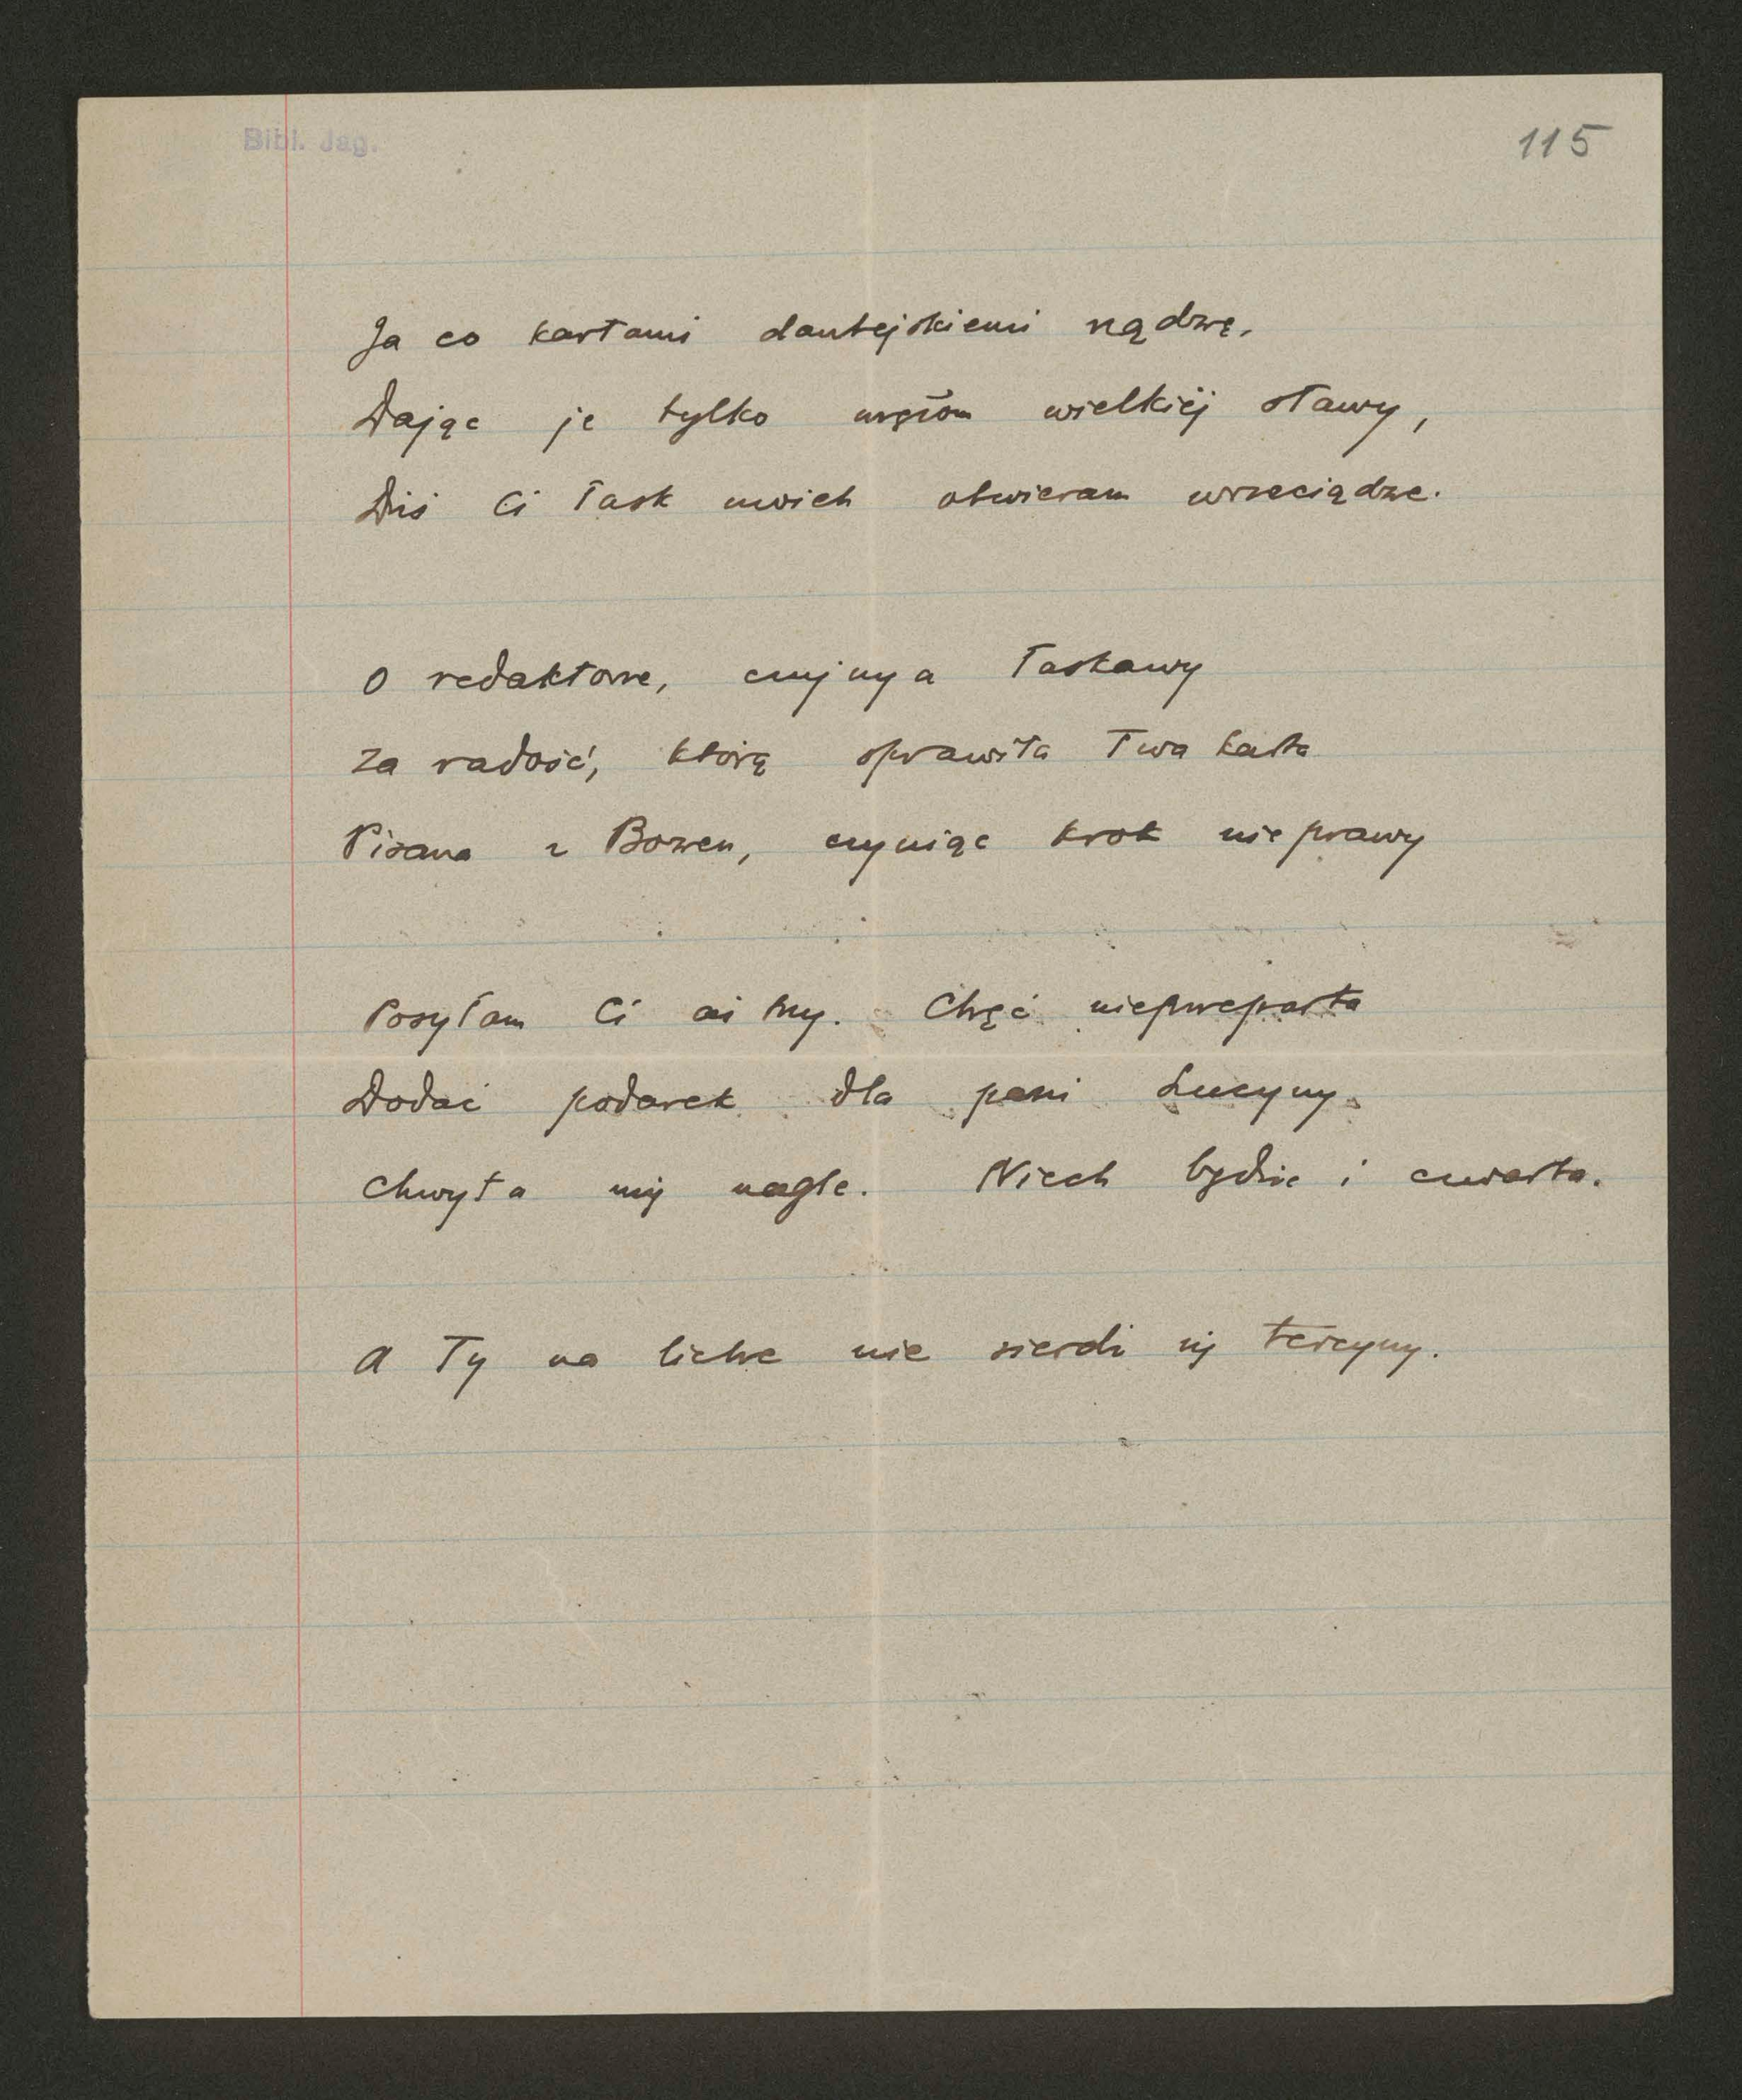 Bibl. Jag.
115
Ja co kartami dantejskiemi rządzę,
Dając je tylko mężom wielkiéj sławy,
Dziś Ci łask moich otwieram wrzeciądze.
O redaktorze, czujny a łaskawy
Za radość, którą sprawiła Twa karta
Pisana z Bozen, czyniąc krok nieprawy
Posyłam Ci aż trzy. Chęć nieprzeparta
Dodać podarek dla pani Lucyny
Chwyta mię nagle. Niech będzie i czwarta.
A Ty na liche nie sierdź się tercyny.